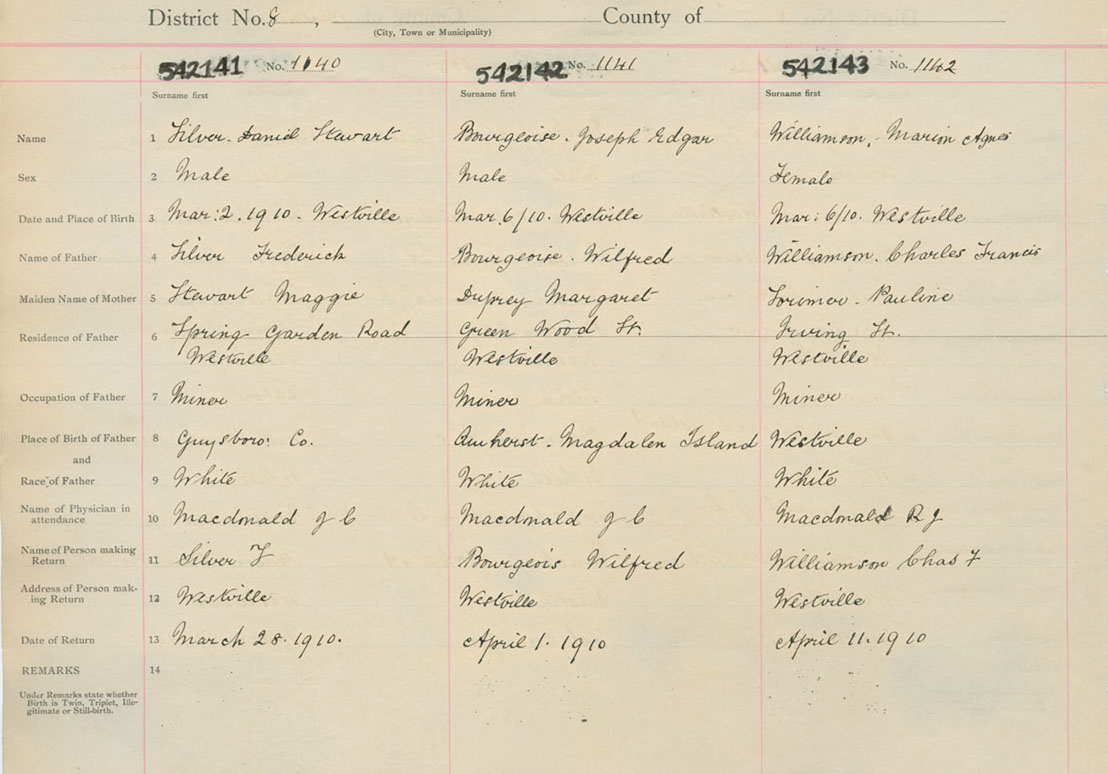 District No. 8, County of
(City, Town or Municipality)
542141 No. 1140 542142 No. 1141 542143 No. 1142
Surname first Surname first Surname first
Name 1 Silver. Daniel Stewart Bourgeoise. Joseph Edgar Williamson, Marion Agnes
Sex 2 Male Male Female
Date and Place of Birth 3 Mar: 2. 1910. Westville Mar. 6/10. Westville Mar: 6/10. Westville
Name of Father 4 Silver Frederick Bourgeoise. Wilfred Williamson. Charles Francis
Maiden Name of Mother 5 Stewart Maggie Duprey Margaret Lorimer. Pauline
Residence of Father 6 Spring Garden Road Green Wood St. Irving St.
Westville Westville Westville
Occupation of Father 7 Miner Miner Miner
Place of Birth of Father 8 Guysboro: Co. Amherst. Magdalen Island Westville
and
Race of Father 9 White White White
Name of Physician in
attendance 10 Macdonald J C Macdonald J C Macdonald R J
Name of Person making
Return 11 Silver F Bourgeois Wilfred Williamson Chas F
Address of Person mak-
ing Return 12 Westville Westville Westville
Date of Return 13 March 28. 1910. April 1. 1910 April 11. 1910
REMARKS 14
Under Remarks state whether
Birth is Twin, Triplet, Ille-
gitimate or Still-birth.